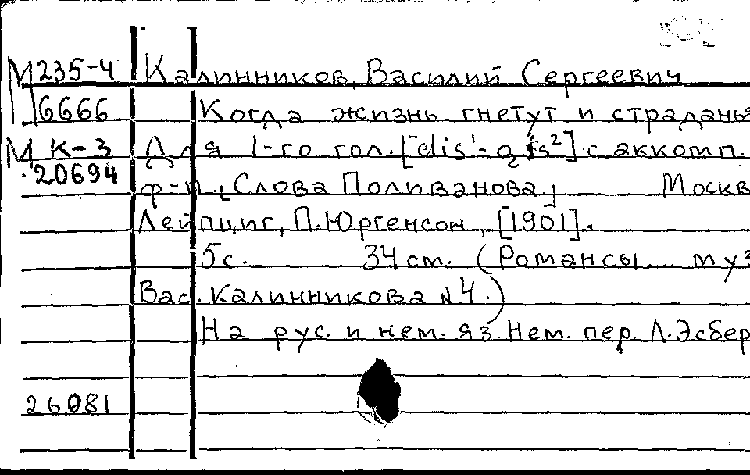 М 235-4 Калинников, Василий Сергеевич
16666 Когда жизнь гнетут и страданья
М К-3 Для 1-го гол. [dis¹-gis²] с аккомп.
20694 ф-п. [Слова Поливанова] Москв
Лейпциг, П. Юргенсон, [1901].
5с. 34 см. (Романсы муз
Вас. Калинникова № 4.)
На рус. и нем. яз. Нем. пер. Л. Эсбер
26081